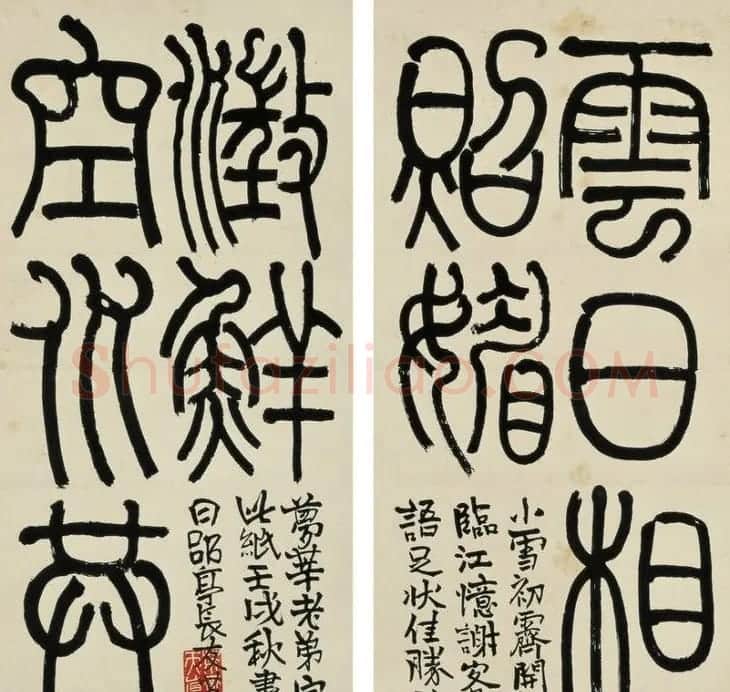 雲日相
照媚
小雪初霽開
臨江憶謝
語足狀佳勝
空水共
澂鮮
夢華老弟
此紙壬戌秋書
日郘亭長
Shufaziliao.COM